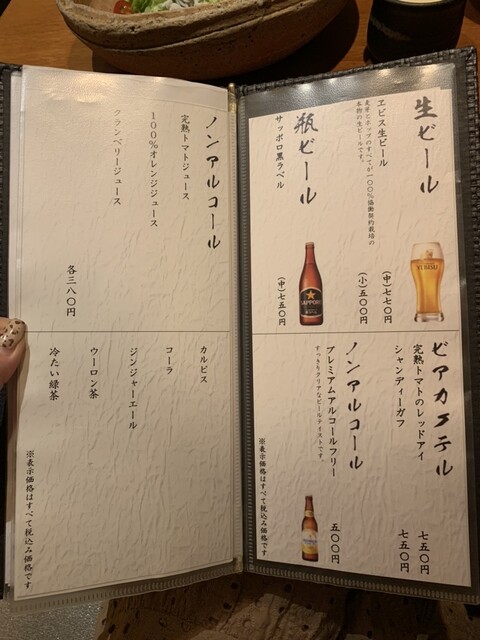 生ビール
ヱビス生ビール
麦芽とホップのすべてが一〇〇％協働契約栽培の
本物の生ビールです。
(中)七七〇円
(小)五〇〇円
YEBISU
瓶ビール
サッポロ黒ラベル
(中)七五〇円
SAPPORO
ビアカクテル
完熟トマトのレッドアイ
七五〇円
シャンディーガフ
七五〇円
ノンアルコール
プレミアムアルコールフリー
五〇〇円
すっきりクリアなビールテイストです。
※表示価格はすべて税込み価格です
ノンアルコール
完熟トマトジュース
100％オレンジジュース
クランベリージュース
各三八〇円
カルピス
コーラ
ジンジャーエール
ウーロン茶
冷たい緑茶
※表示価格はすべて税込み価格です